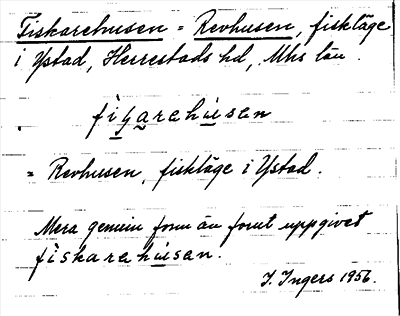 Fiskarehusen = Revhusen, fiskläge
i Ystad, Herrestads hd, Mhs län.
fiʂarehusen
= Revhusen, fiskläge i Ystad.
Mera genuin form än förut uppgivet
fiskarahusan.
I. Ingers 1956.